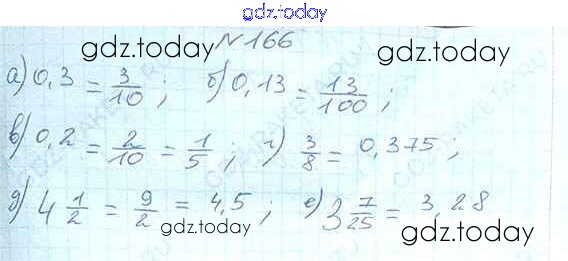 gdz.today
№166
gdz.today gdz.today
а) 0,3 = 3/10 ; б) 0,13 = 13/100 ;
в) 0,2 = 2/10 = 1/5 ; г) 3/8 = 0,375 ;
д) 4 1/2 = 9/2 = 4,5 ; е) 3 7/25 = 3,28
gdz.today gdz.today